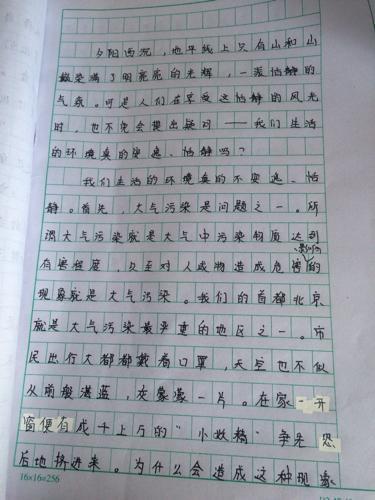 夕阳西沉，地平线上只有山和山
巅染满了明亮亮的光辉，一派恬静的
气象。可是人们在享受这恬静的风光
时，也不免会提出疑问——我们生活
的环境真的安逸、恬静吗？
我们生活的环境真的不安逸、恬
静。首先，大气污染是问题之一。所
谓大气污染就是大气中污染物质达到
有害程度，久至对人或物造成危害的
现象就是大气污染。我们的首都北京
就是大气污染最严重的地区之一。市
民出行大都都戴着口罩，天空也不似
从前般湛蓝，灰蒙蒙一片。在家一开
窗便有成千上万的“小妖精”争先恐
后地挤进来。为什么会造成这种现象
16×16=256